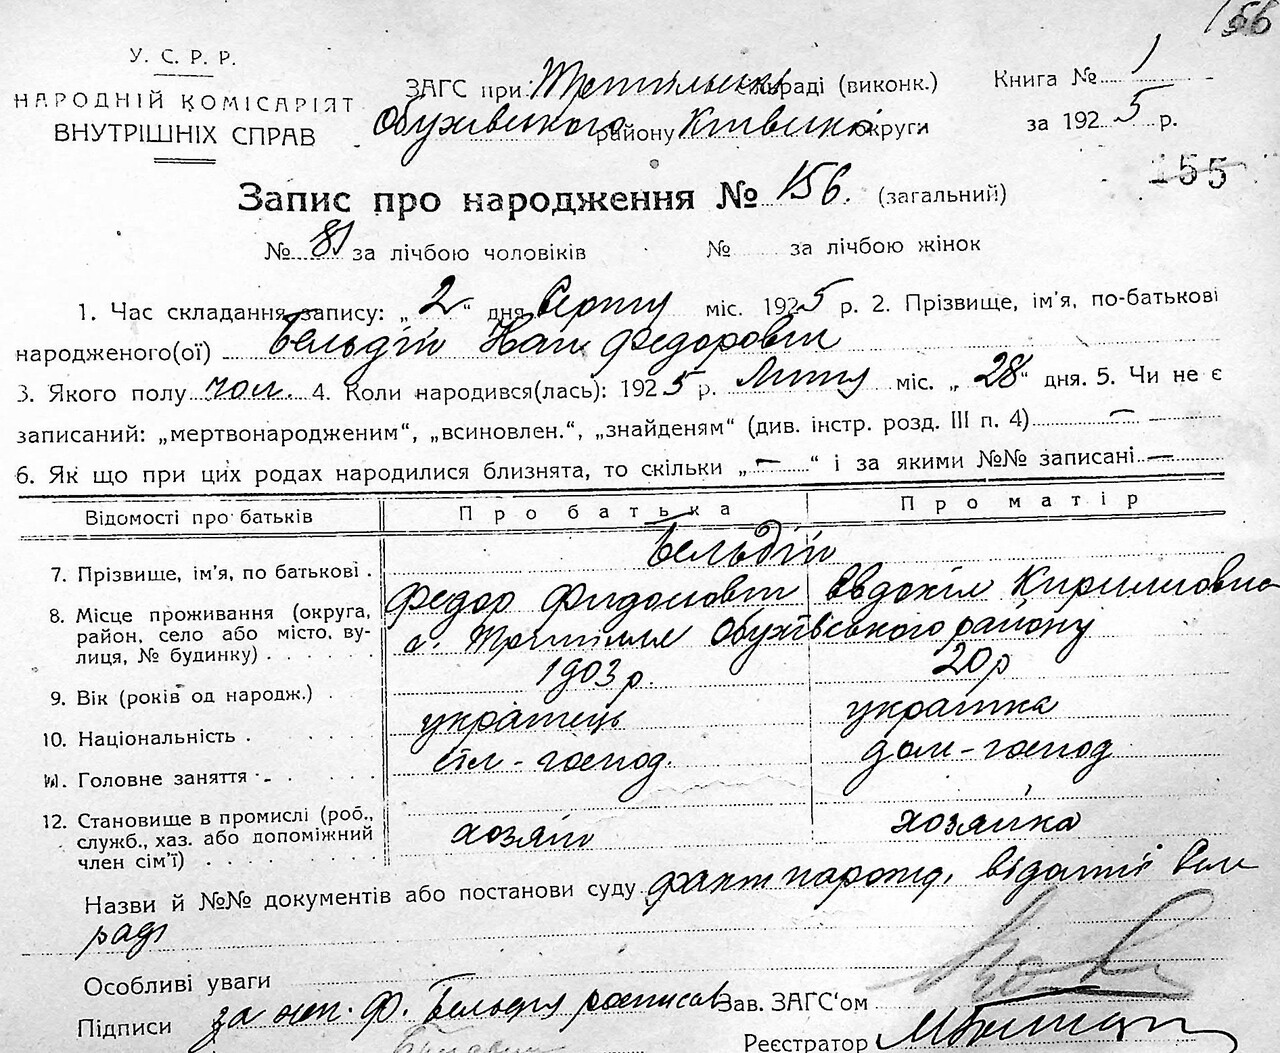 156
У. С. Р. Р.
НАРОДНІЙ КОМІСАРІЯТ
ВНУТРІШНІХ СПРАВ
ЗАГС при сільраді (виконк.)
Обухівського району Київської округи
Книга № 1
за 1925 р.
155
Запис про народження № 156. (загальний)
№ 81 за лічбою чоловіків № за лічбою жінок
1. Час складання запису: „ 2 “ дня Серпня міс. 1925 р. 2. Прізвище, ім’я, по-батькові
народженого(ої) Бельдій Федорович
3. Якого полу чол. 4. Коли народився(лась): 1925 р. Липня міс. „ 28 “ дня. 5. Чи не є
записаний: „мертвонародженим“, „всиновлен.“, „знайденям“ (див. інстр. розд. III п. 4) —
6. Як що при цих родах народилися близнята, то скільки „ — “ і за якими №№ записані —
Відомості про батьків Про батька Про матір
Бельдій
7. Прізвище, ім’я, по батькові . Федор Евдокія Кирилловна
8. Місце проживання (округа, район, село або місто, ву-лиця, № будинку) . . . . . с. Трипілля Обухівського району
9. Вік (років од народж.) . 1903 р. 20 р
10. Національність . українець українка
11. Головне заняття . сіл-господ. дом-господ
12. Становище в промислі (роб., служб., хаз. або допоміжний член сім’ї) . . . . . хозяїн хозяйка
Назви й №№ документів або постанови суду факт народж. видатий Сель
ради
Особливі уваги
Підписи за неп. Ф. Бельдія росписав Зав. ЗАГС‘ом
Реєстратор